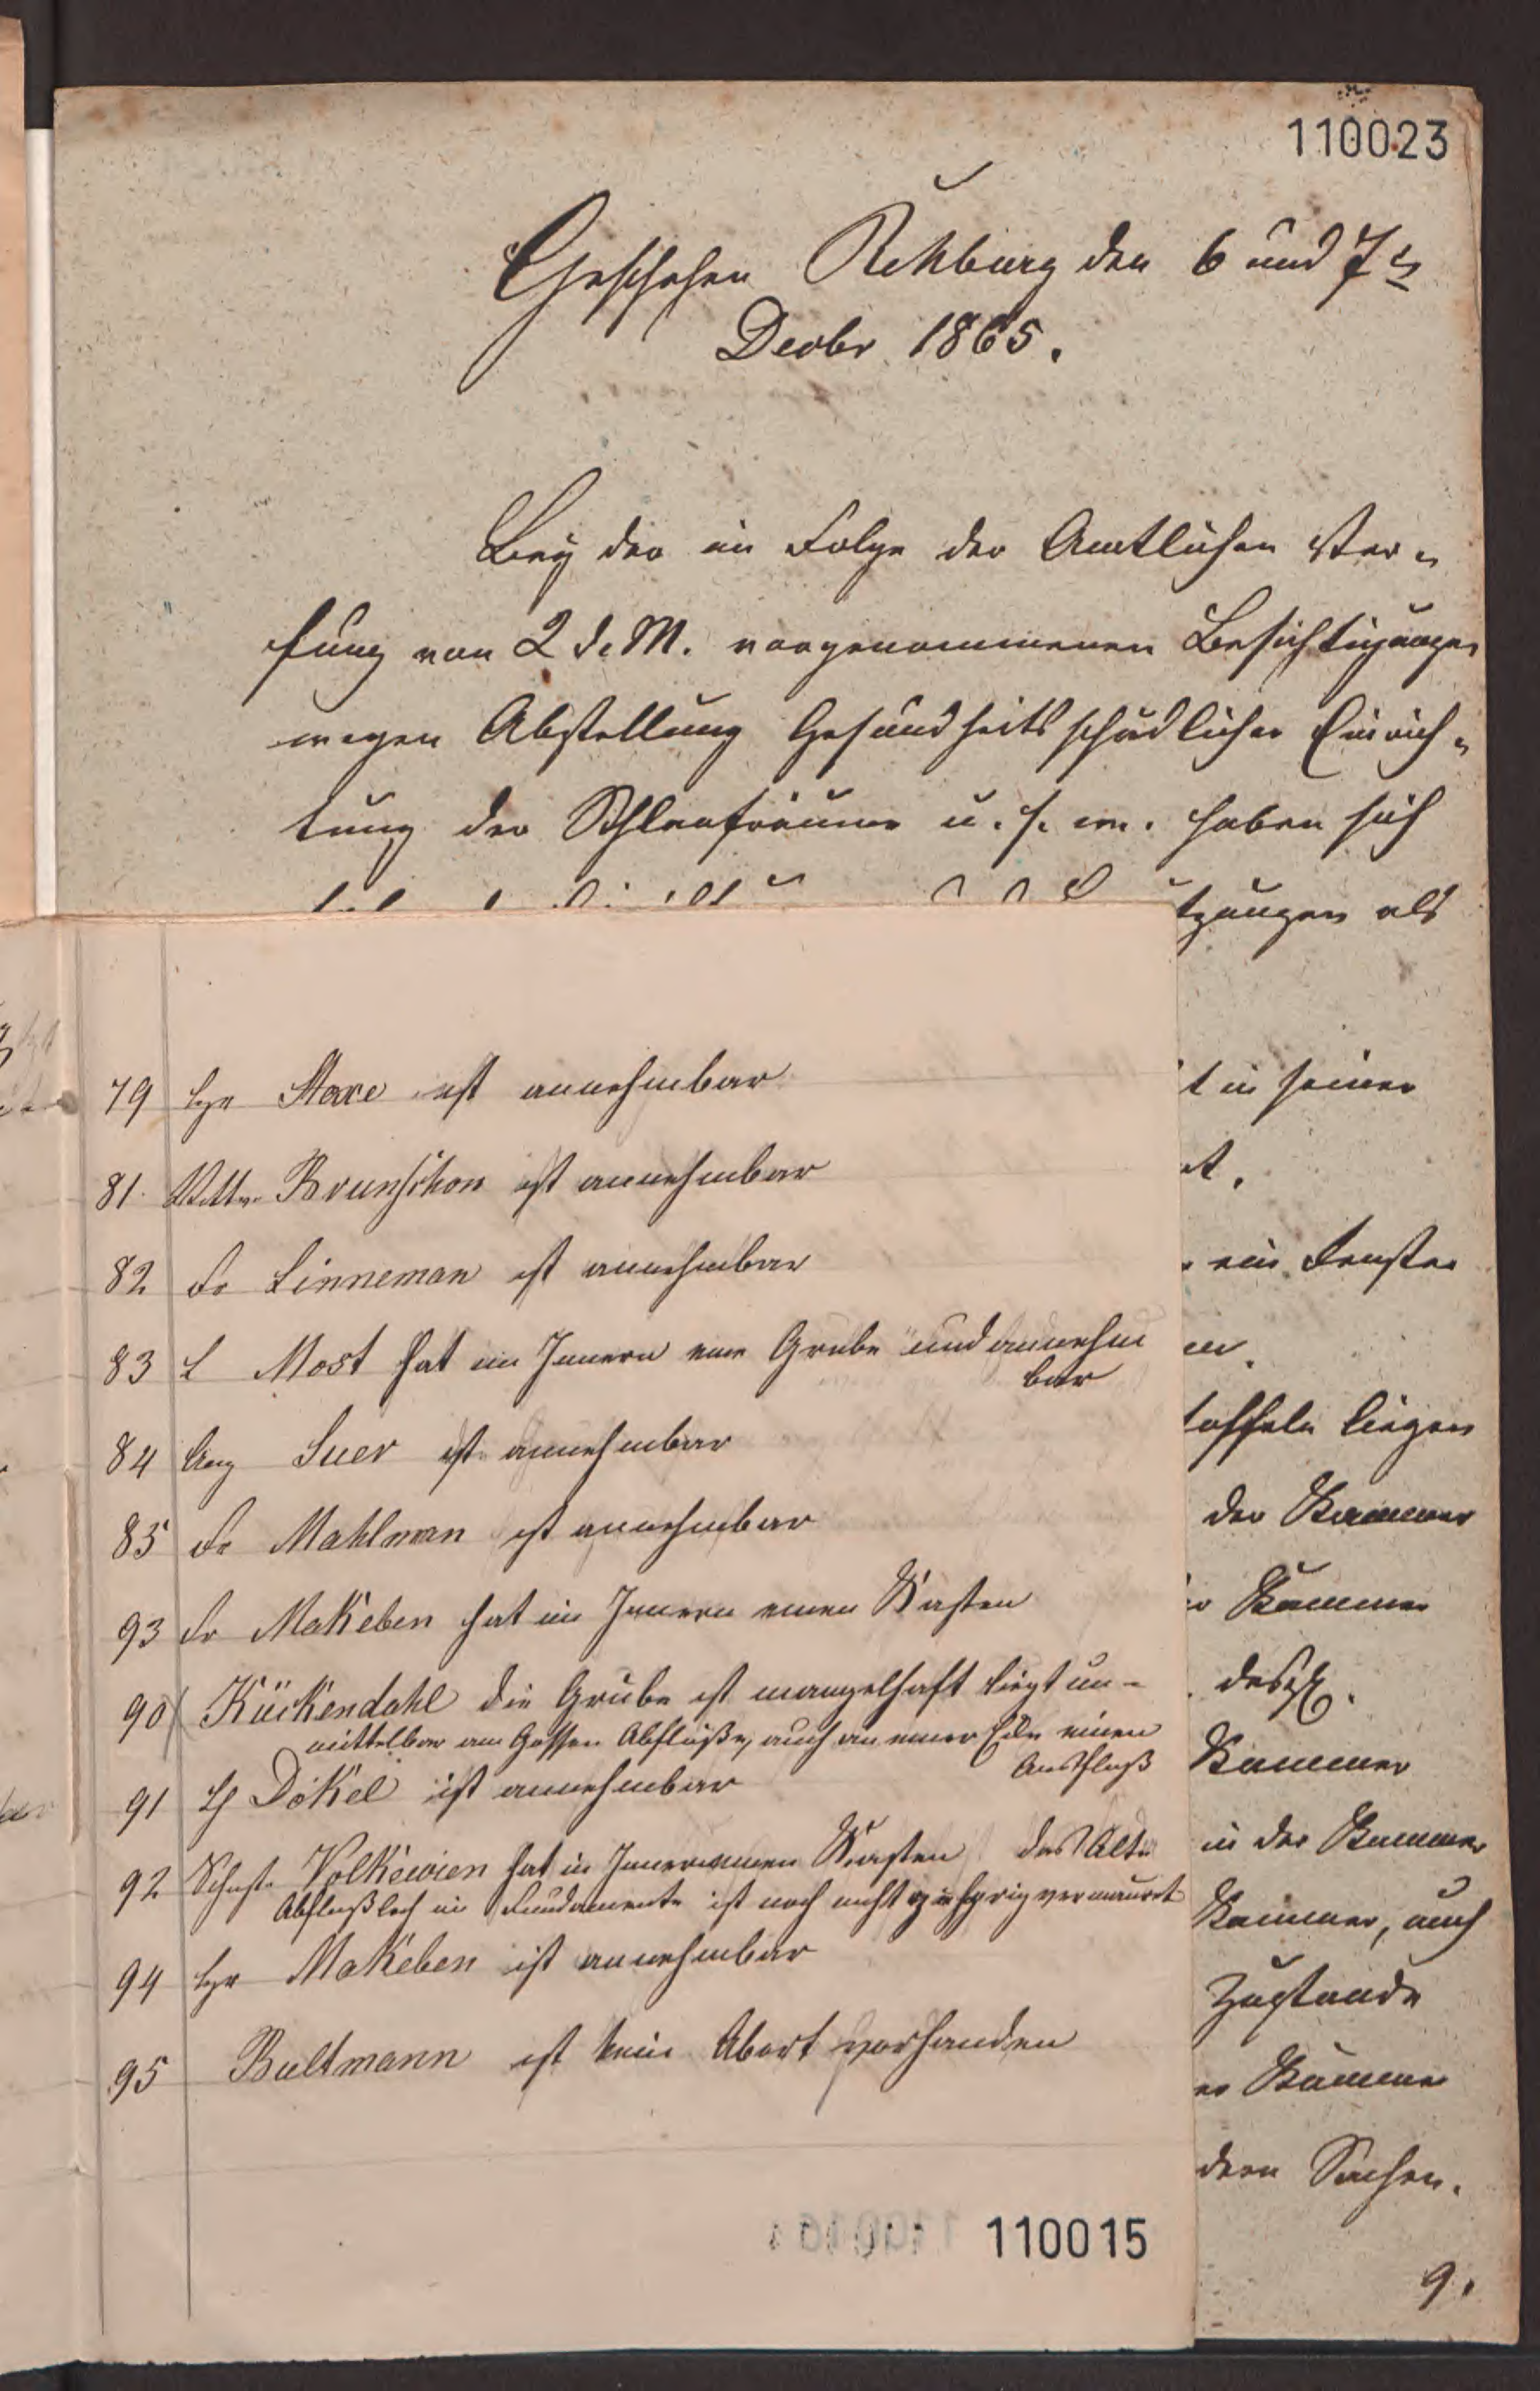 110023
Geschehen Rehburg den 6 und 7ts
Decbr 1865.
Bey der in Folge der Amtlichen Ver-
fung von 2 d. M. vorgenommenen Besichtigungen
wegen Abstellung Gesundheitsschädlicher Einrich-
tung der Schlafräume u. s. w. haben sich
tzungen als
t in seiner
t.
ein Fenster
en.
toffeln liegen
der Kammer
Kammer
desgl.
Kammer
in der Kammer
Kammer, auch
Zustande
er Kammer
dern Sachen.
9.
79 Stare ist annehmbar
81. Wittw. Brunschon ist annehmbar
82 Fr Linneman ist annehmbar
83 L Most hat im Innern eine Grube und annehm
bar
84 Aug Suer ist annehmbar
85 Fr Mahlman ist annehmbar
93 Fr Makeben hat im Innern einen Kasten
90 Kückendahl die Grube ist mangelhaft liegt un-
mittelbar am Gossen Abfluße, auch an einer Ecke einen
Ausfluß
91 Dökel ist annehmbar
92 Schust. Volkewien hat im Innern einen Kasten das Alte
Abflußloch im Fundamente ist noch nicht gehörig vermauert
94 Makeben ist annehmbar
95 Bultmann ist kein Abort vorhanden
110015